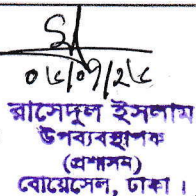 ০৮/০৭/২৫
রাসেদুল ইসলাম
উপব্যবস্থাপক
(প্রশাসন)
বোয়েসেল, ঢাকা।